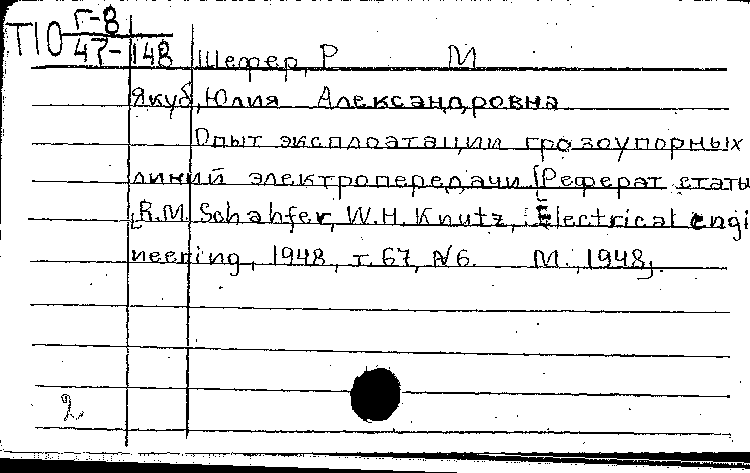 Т10 Г-8
47-148 Шефер, Р М
Якуб, Юлия Александровна
Опыт эксплоатации грозоупорных
линий электропередачи [Реферат статьи
R.M. Schahfer, W.H. Knutz, Electrical engi
neering, 1948, т. 67, №6. М., 1948].
2